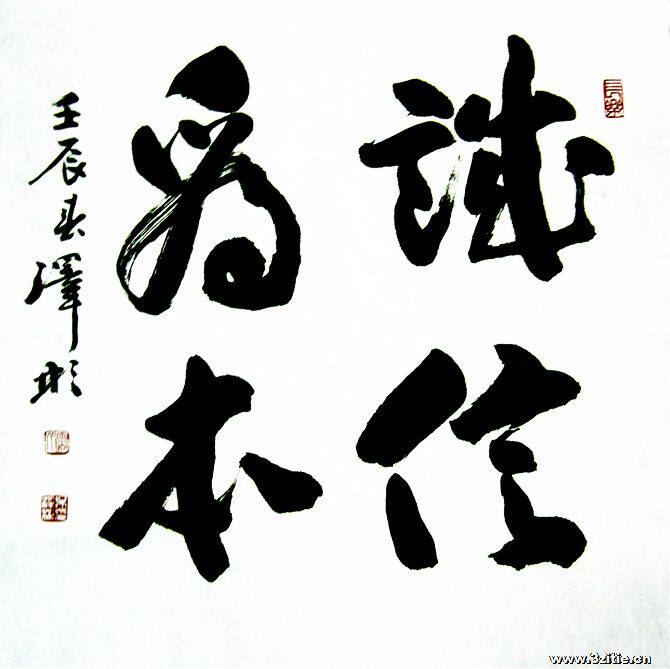 誠信
為本
壬辰春澤彬
www.3zitie.cn